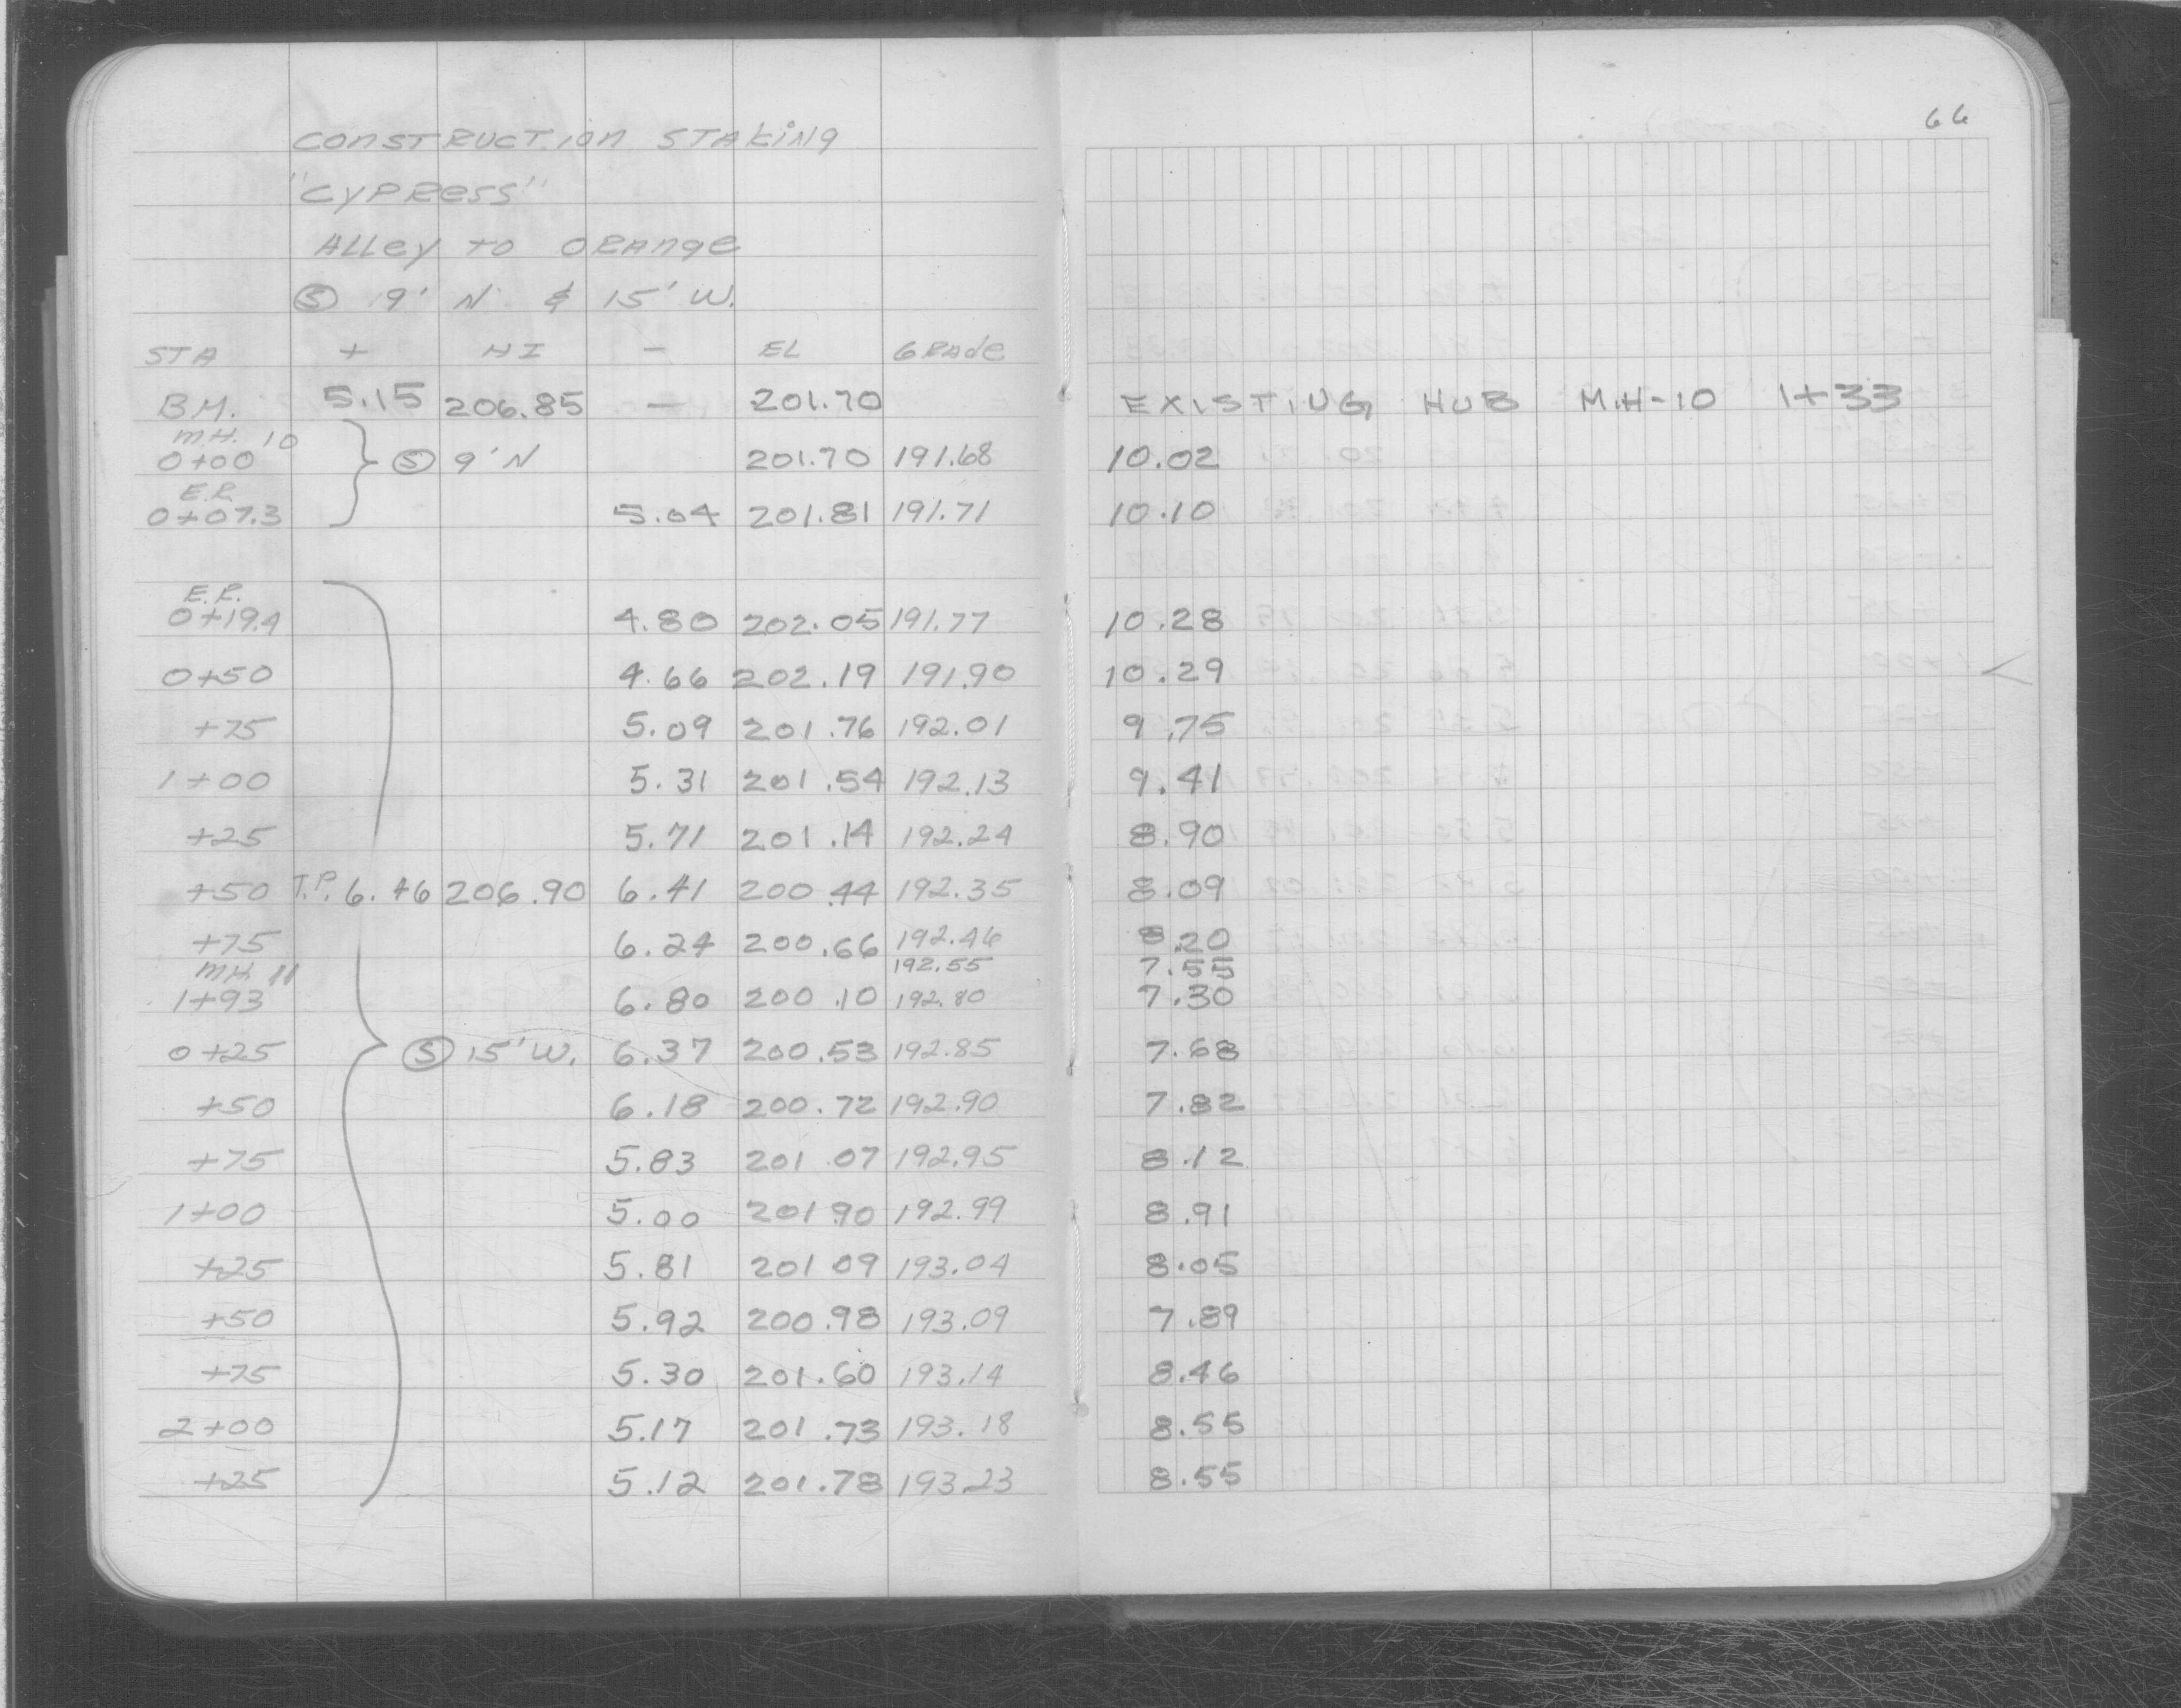 66
CONSTRUCTION STAKING
"CYPRESS"
ALLEY TO ORANGE
Ⓢ 9' N & 15' W.
STA + HI - EL GRADE
B.M. 5.15 206.85 — 201.70 EXISTING HUB M.H-10 1+33
M.H. 10
0+00 Ⓢ 9' N 201.70 191.68 10.02
E.R.
0+07.3 5.04 201.81 191.71 10.10
E.R.
0+19.4 4.80 202.05 191.77 10.28
0+50 4.66 202.19 191.90 10.29
+75 5.09 201.76 192.01 9.75
1+00 5.31 201.54 192.13 9.41
+25 5.71 201.14 192.24 8.90
+50 T.P. 6.46 206.90 6.41 200.44 192.35 8.09
+75 6.24 200.66 192.46 8.20
M.H. 11 192.55 7.55
1+93 6.80 200.10 192.80 7.30
0+25 Ⓢ 15' W. 6.37 200.53 192.85 7.68
+50 6.18 200.72 192.90 7.82
+75 5.83 201.07 192.95 8.12
1+00 5.00 201.90 192.99 8.91
+25 5.81 201.09 193.04 8.05
+50 5.92 200.98 193.09 7.89
+75 5.30 201.60 193.14 8.46
2+00 5.17 201.73 193.18 8.55
+25 5.12 201.78 193.23 8.55